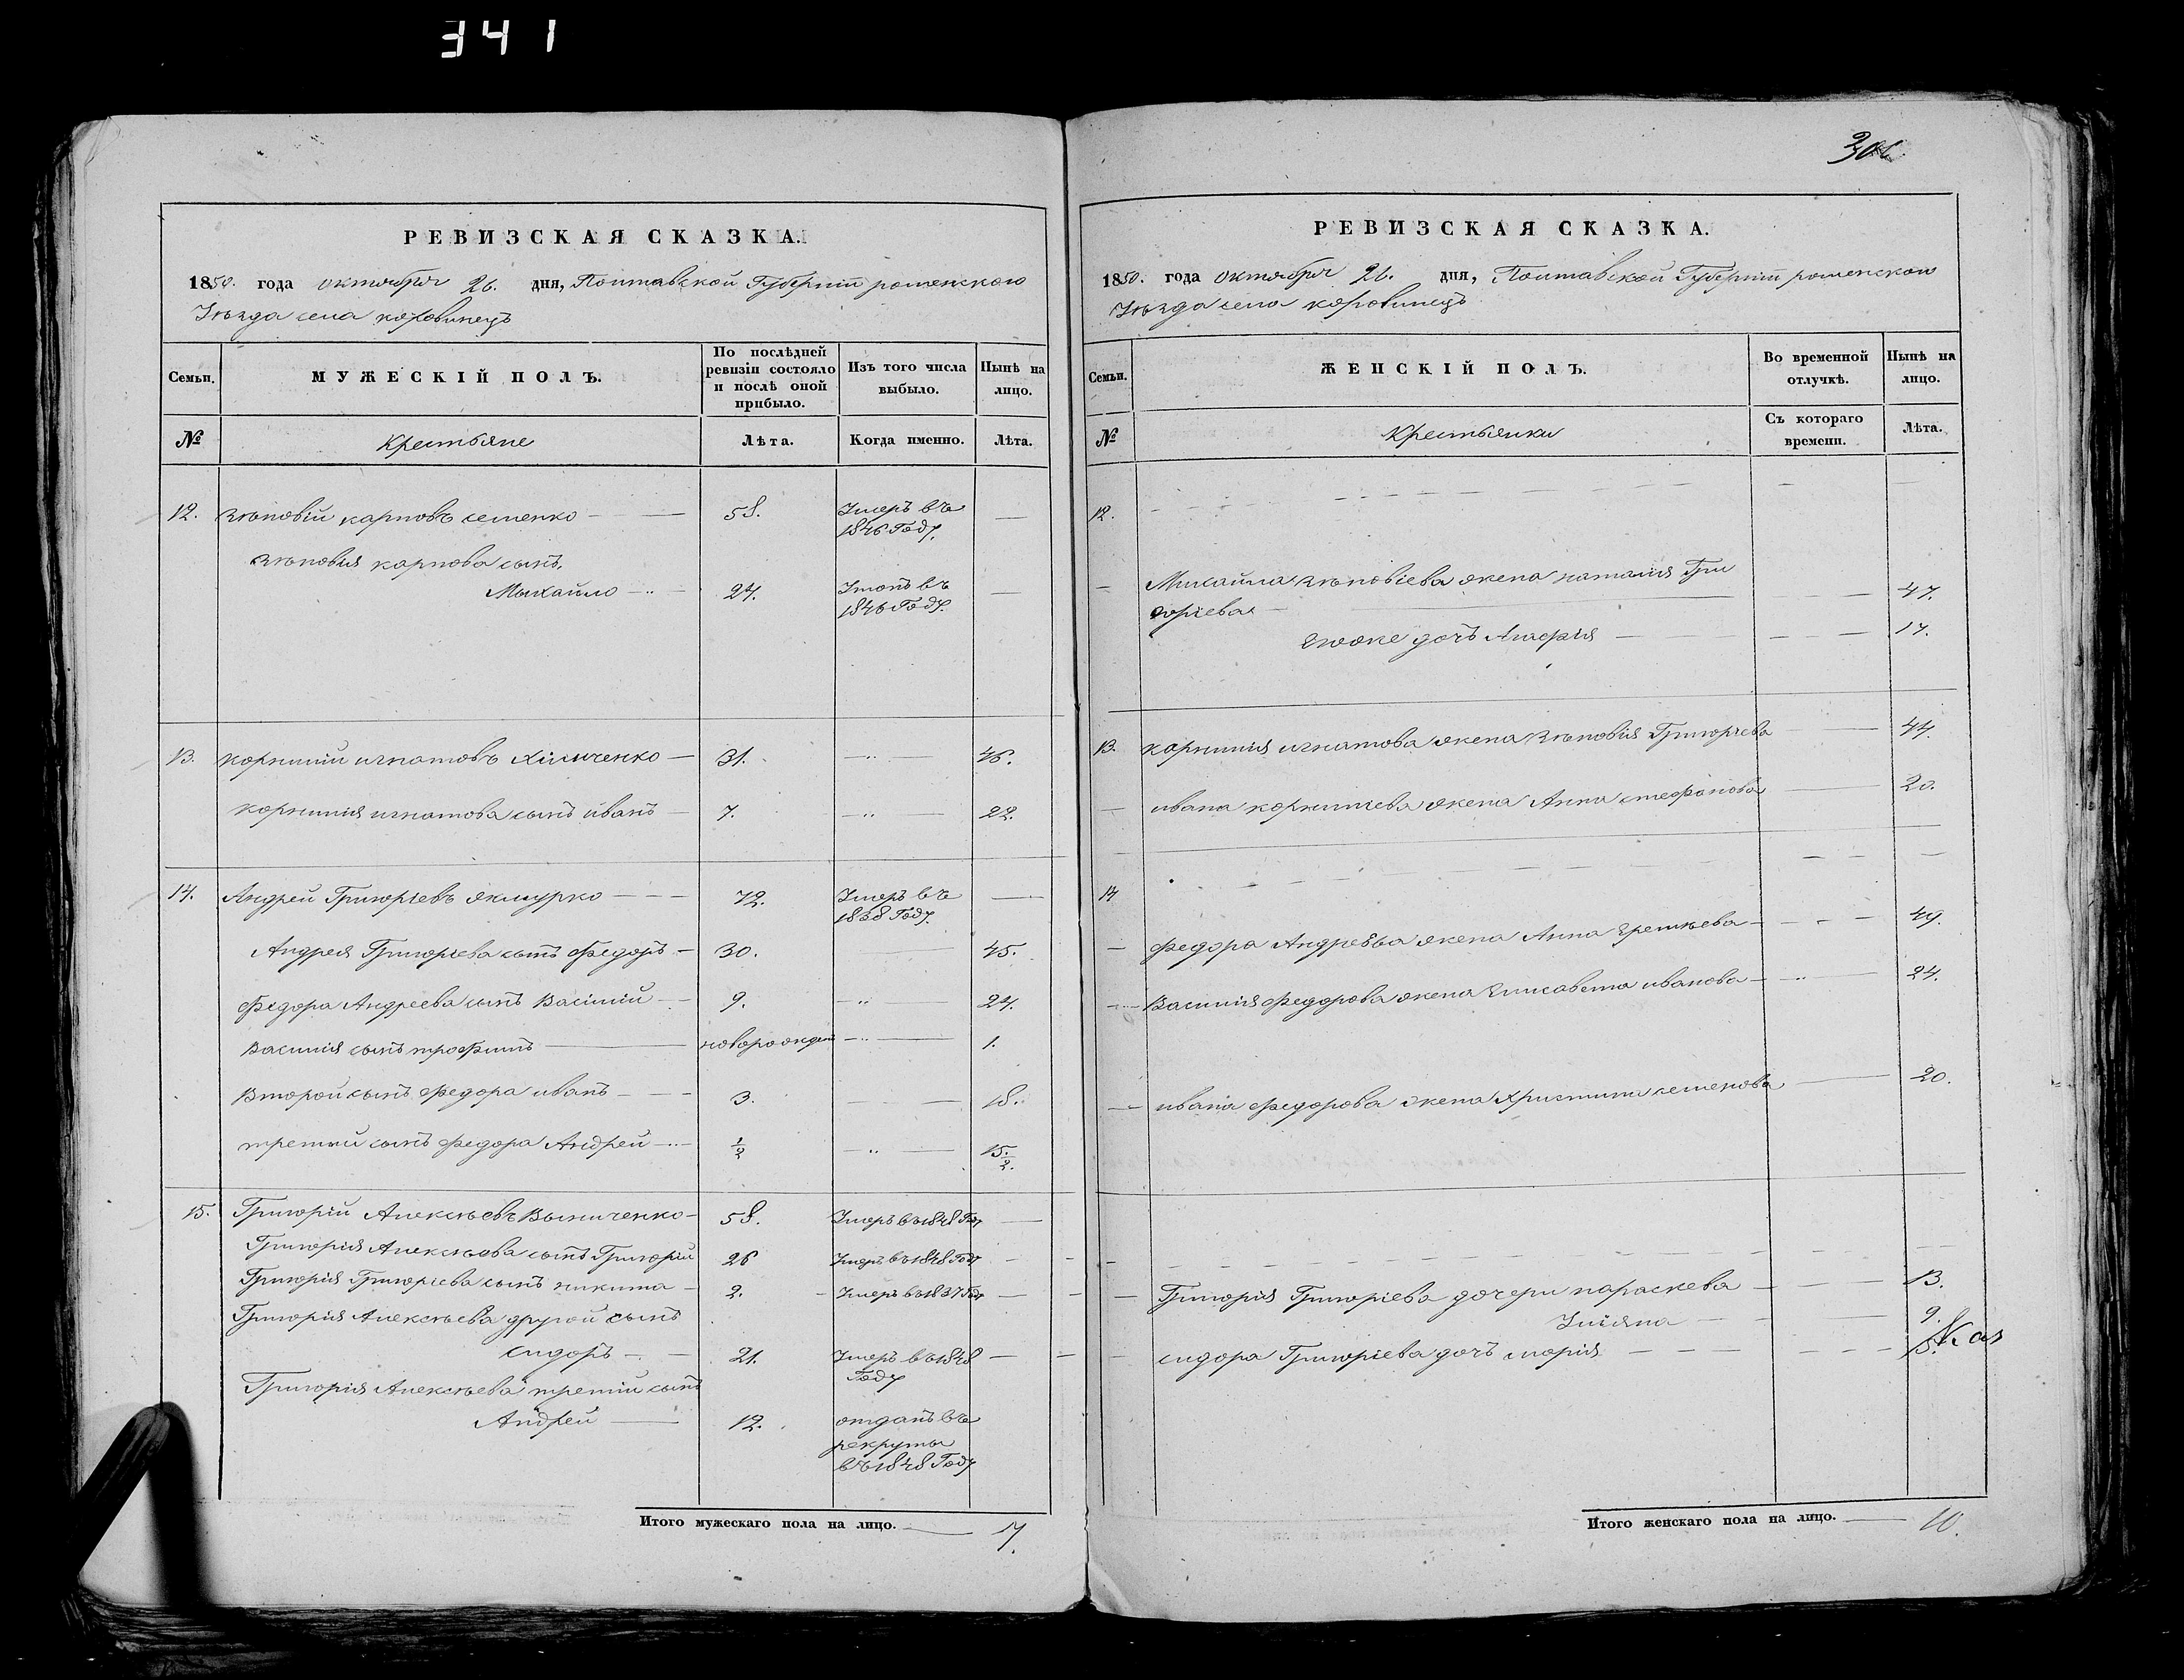 341
РЕВИЗСКАЯ СКАЗКА.
1850. года октября 26. дня, Полтавской Губерніи роменского
Уѣзда села коровинецъ
Семьи.
МУЖЕСКІЙ ПОЛЪ.
По послѣдней ревизіи состояло и послѣ оной прибыло.
Изъ того числа выбыло.
Нынѣ на лицо.
№
Крестьяне
Лѣта.
Когда именно.
Лѣта.
12. Зѣновій карповъ семенко 58. Умеръ въ 1846 Году.
Зѣновія карпова сынъ,
Михайло 27. Утопъ въ 1846 Году.
13. корнилій игнатовъ Хильченко 31. 46.
корнилія игнатова сынъ иванъ 7. 22.
14. Андрей Григоріевъ якмурко 72. Умеръ въ 1838 Году.
Андрея Григоріева сынъ Федоръ 30. 45.
Федора Андреева сынъ Василій 9. 24.
Василія сынъ трофимъ новорожден 1.
Второй сынъ Федора иванъ 3. 18.
третий сынъ федора Андрей ½ 15.½.
15. Григорій Алексѣевъ Винниченко 58. Умеръ въ 1848 Году
Григорія Алексѣева сынъ Григорій 26 Умеръ въ 1848 Году
Григорія Григоріева сынъ никита 2. Умеръ въ 1837 Году
Григорія Алексѣева другой сынъ
сидоръ 21. Умеръ въ 1848 Году
Григорія Алексѣева третій сынъ
Андрей 12. отданъ въ рекруты въ 1848 Году
Итого мужескаго пола на лицо. 7.
РЕВИЗСКАЯ СКАЗКА.
1850. года октября 26. дня, Полтавской Губерніи роменского
Уѣзда села коровинецъ
Семьи.
ЖЕНСКІЙ ПОЛЪ.
Во временной отлучкѣ.
Нынѣ на лицо.
№
Крестьянки
Съ котораго времени.
Лѣта.
12.
Михайла Зѣновіева жена наталія Гри
горіева 47.
Егоже дочь Агафія 17.
13. корнилія игнатова жена Зѣновія Григорьева 44.
ивана корнилиева жена Анна стефанова 20.
14
федора Андреева жена Анна 49.
Василія Федорова жена Елисавета иванова 24.
ивана федорова жена Христина семенова 20.
Григорія Григоріева дочери параскева 13.
Уліяна 9.
сидора Григоріева дочъ марія
Итого женскаго пола на лицо. 10.